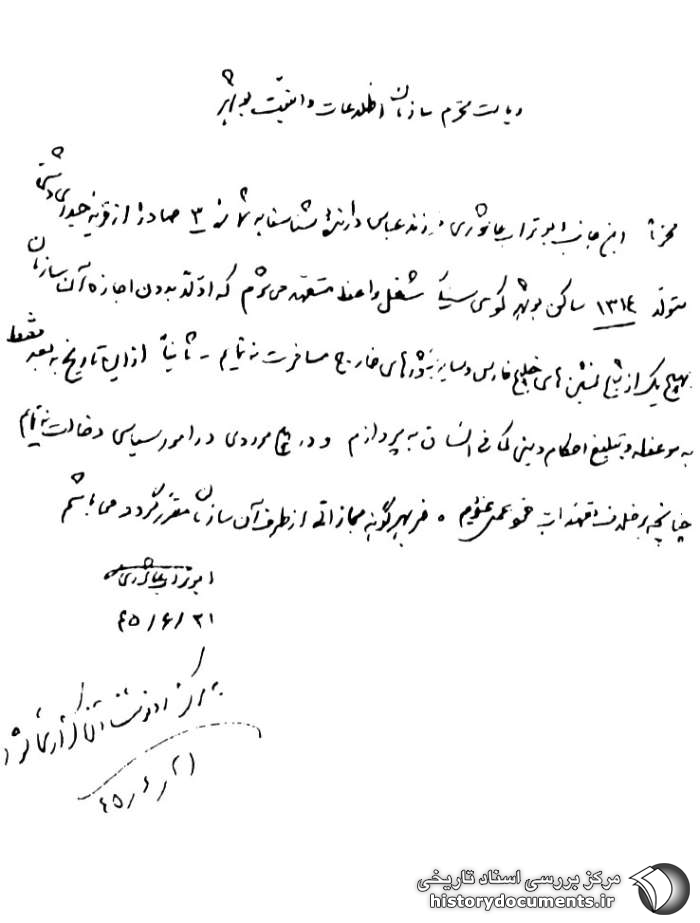 ریاست محترم سازمان اطلاعات و امنیت بوشهر
محترماً اینجانب ابوتراب عاشوری فرزند عباس دارنده شناسنامه شماره ۳ صادره از قریه
متولد ۱۳۱۴ ساکن بوشهر کوی شغل واعظ متعهد می‌شوم که اولاً بدون اجازه آن سازمان
بهیچ یک از شیخ نشین‌های خلیج فارس و سایر کشورهای خارج مسافرت ننمایم - ثانیاً از این تاریخ به بعد فقط
به موعظه و تبلیغ احکام دینی به پردازم و در هیچ موردی در امور سیاسی دخالت ننمایم
چنانچه برخلاف تعهدات فوق عمل نمودم هر گونه مجازاتی از طرف آن سازمان مقرر گردد می‌باشم
ابوتراب عاشوری
۴۵/۶/۲۱
۲۱/۶/۴۵
مرکز بررسی اسناد تاریخی
historydocuments.ir